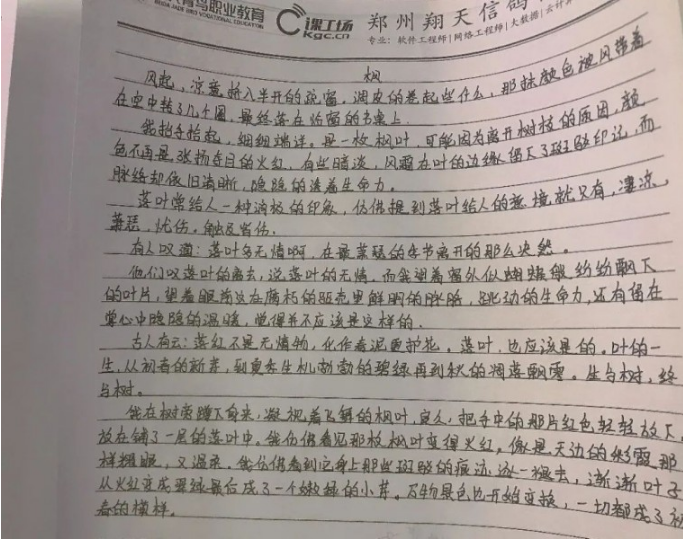 青鸟职业教育 课工场 郑州翔天信鸽
kgc.cn 专业：软件工程师|网络工程师|大数据|云计算
枫
风起，凉意挤入半开的疏窗，调皮的卷起些什么，那抹颜色被风带着
在空中转了几个圈，最终落在的书桌上
我抬手拾起，细细端详。是一枚枫叶，可能因为离开树枝的原因，颜
色不再是张扬夺目的火红，有些暗淡，风霜在叶的边缘留下了斑驳印记，而
脉络却依旧清晰，隐隐的透着生命力。
落叶常给人一种消极的印象，仿佛提到落叶给人的意境就只有，凄凉，
萧瑟，忧伤，触及皆伤。
有人叹道：落叶多无情啊，在最萧瑟的季节离开的那么决然。
他们叹落叶的离去，说落叶的无情，而我望着窗外似蝴蝶般纷纷飘下
的叶片，望着眼前这在腐朽的里鲜明的脉络，跳动的生命力，还有留在
掌心中隐隐的温暖，觉得并不应该是这样的。
古人有云：落红不是无情物，化作春泥更护花。落叶，也应该是的，叶的一
生，从初春的新芽，到夏季生机勃勃的碧绿再到秋的凋落飘零。生与树，终
与树。
我在树旁蹲下身来，凝视着飞舞的枫叶，良久，把手中的那片红色轻轻放下，
放在铺了一层的落叶中。我仿佛看见那枚枫叶变得火红，像是天边的彩霞那
样耀眼，又温柔，我仿佛看到它身上那些斑驳的痕迹逐一褪去，渐渐叶子
从火红变成翠绿最后成了一个嫩绿的小芽。万物景色也开始变换，一切都成了初
春的模样。